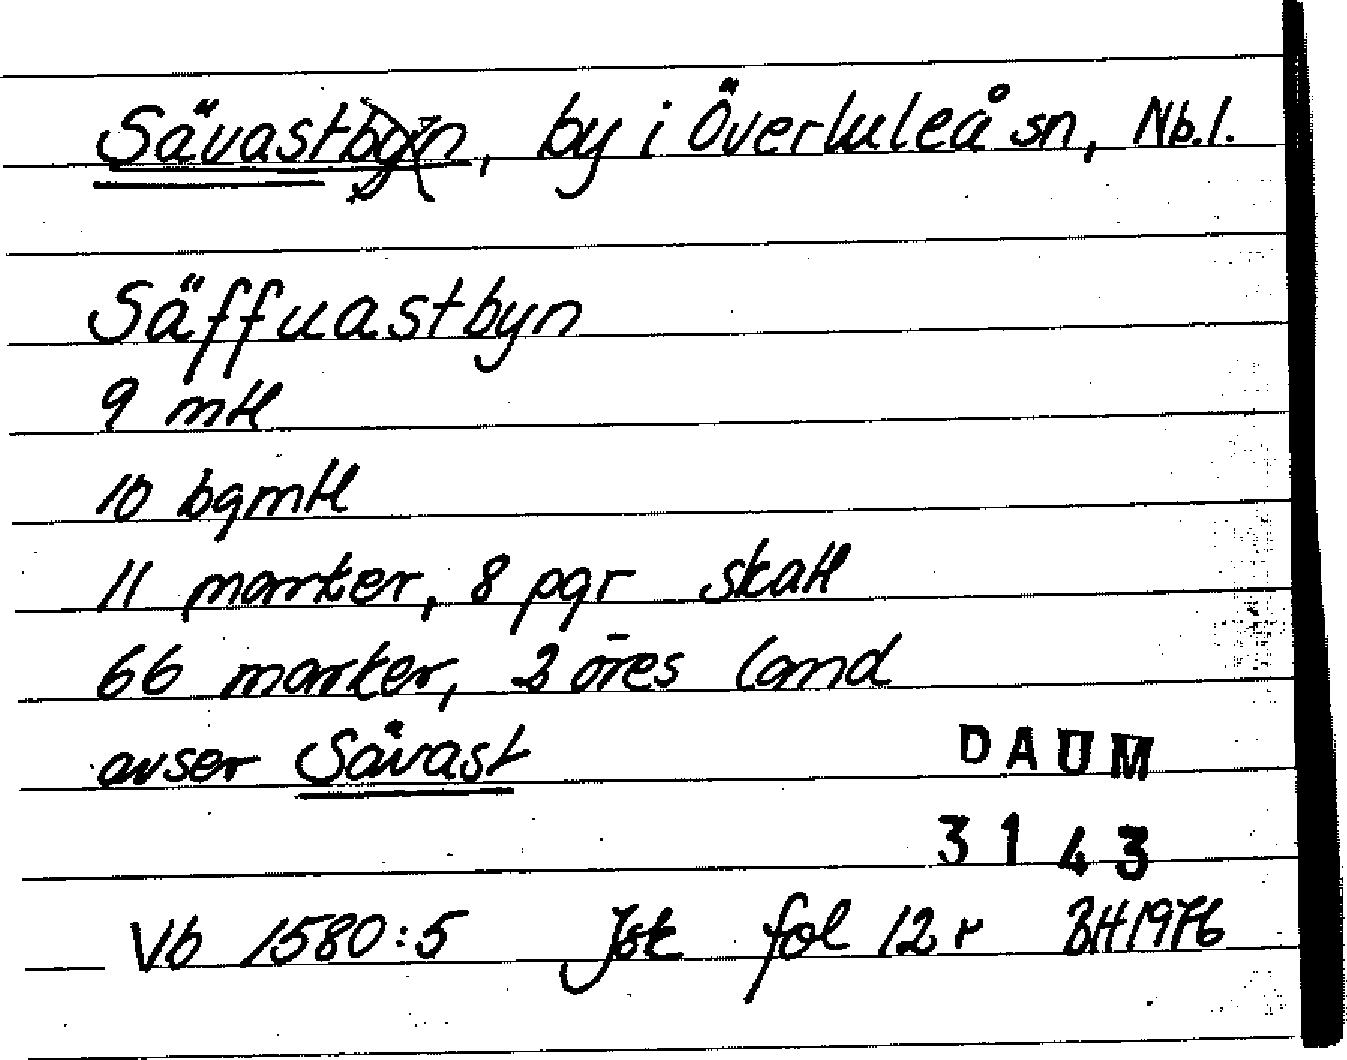 Sävastbyn, by i Överluleå sn, Nb.l.
Säffuastbyn
9 mtl
10 bgmtl
11 marker, 8 pgr skatt
66 marker, 2 öres land
avser Sävast
DAUM
3143
Vb 1580:5 Jbk fol 12r BH1976